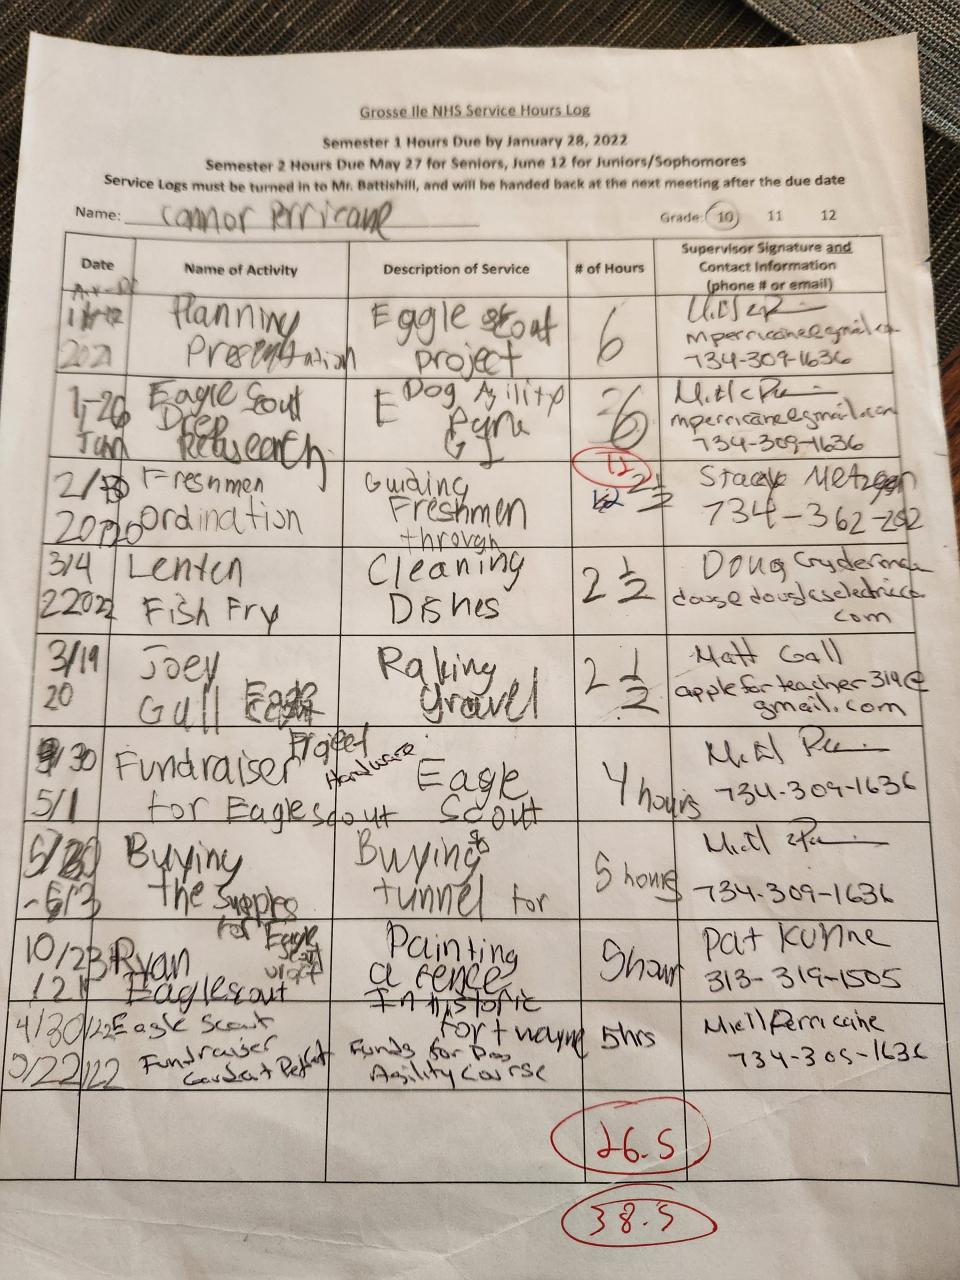 Grosse Ile NHS Service Hours Log
Semester 1 Hours Due by January 28, 2022
Semester 2 Hours Due May 27 for Seniors, June 12 for Juniors/Sophomores
Service Logs must be turned in to Mr. Battishill, and will be handed back at the next meeting after the due date
Name: Connor Perricane Grade: 10 11 12
Date Name of Activity Description of Service # of Hours Supervisor Signature and Contact Information (phone # or email)
2021 Planning Presentation Eggle scout project 6 mperricane@gmail.com 734-309-1636
1-26 Jan Eagle Scout Deep Research Dog Agility 6 mperricane@gmail.com 734-309-1636
12
2/ Freshmen Ordination Guiding Freshmen through 2 1/2 Metzger 734-362-
3/4 22022 Lenten Fish Fry Cleaning Dishes 2 1/2 Doug com
3/19 20 Joey Gull Raking gravel 2 1/2 Matt Gall appleforteacher319@gmail.com
/30 5/1 Fundraiser Project Hardware for Eagle scout Eagle Scout 4 hours 734-309-1636
5/ -6/3 Buying the supplies for Eagle Buying tunnel for 5 hours 734-309-1636
10/23 /21 Ryan Eaglescout Painting a fence In historic fort wayne 5 hour Pat Kuhne 313-319-1505
4/30/22 /22/22 Eagle Scout Fundraiser Funds for Dog Agility Course 5hrs Perricane 734-305-1636
26.5
38.5